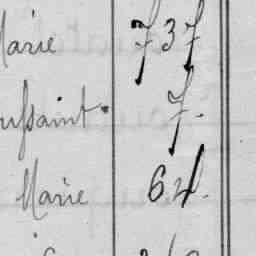 Marie 737
Toussaint 7.
Marie 64.